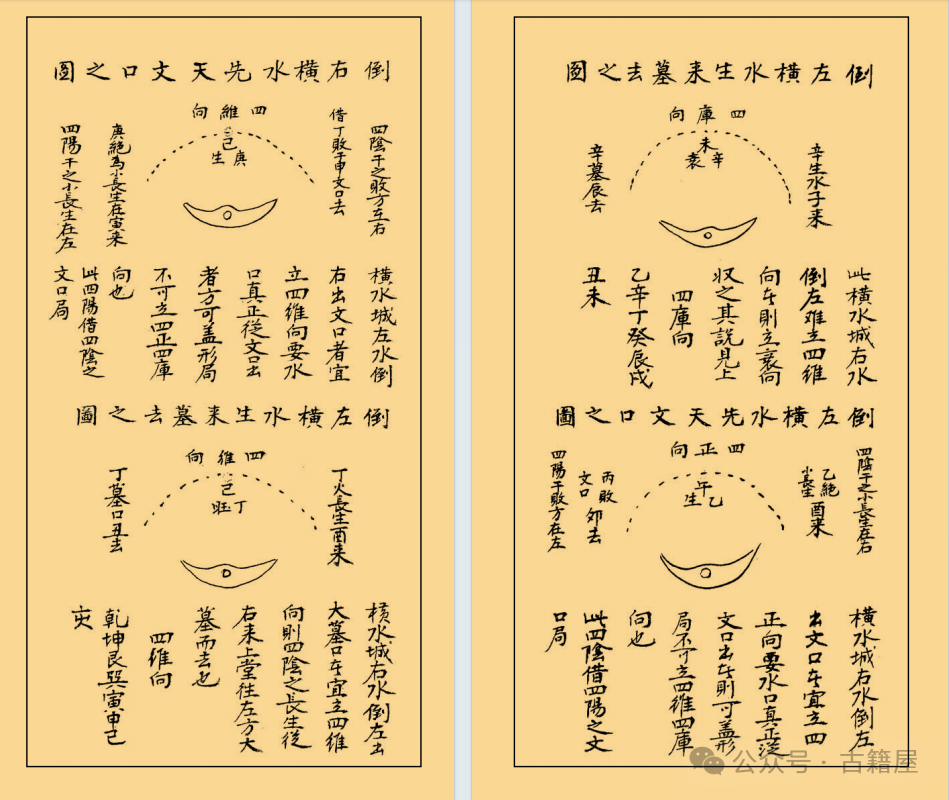 倒左横水生来墓去之圖
四庫向
辛生水子来
未
辛
衰
辛墓辰去
此橫水城右水
倒左难立四維
向本則立衰向
収之其說見上
四庫向
乙辛丁癸辰戌
丑未
倒左橫水先天文口之圖
四正向
四陰干之小長生在右
乙絕
小長生
酉来
午
乙
生
丙敗
文口
卯去
四陽干敗方在左
橫水城右水倒左
出文口本宜立四
正向要水口真正從
文口出本則可盖形
局不可立四維四庫
向也
此四陰借四陽之文
口局
倒右橫水先天文口之圖
四維向
四陰干之敗方在右
借丁敗于申文口去
己
庚
生
庚絕為小長生在寅来
四陽干之小長生在左
橫水城左水倒
右出文口者宜
立四維向要水
口真正從文口出
者方可盖形局
不可立四正四庫
向也
此四陽借四陰之
文口局
倒左橫水生来墓去之圖
四維向
丁火長生酉来
己
丁
旺
丁墓口丑去
橫水城右水倒左出
大墓口本宜立四維
向則四陰之長生從
右来上堂往左方大
墓而去也
四維向
乾坤艮巽寅申己
亥
公众号·古籍屋